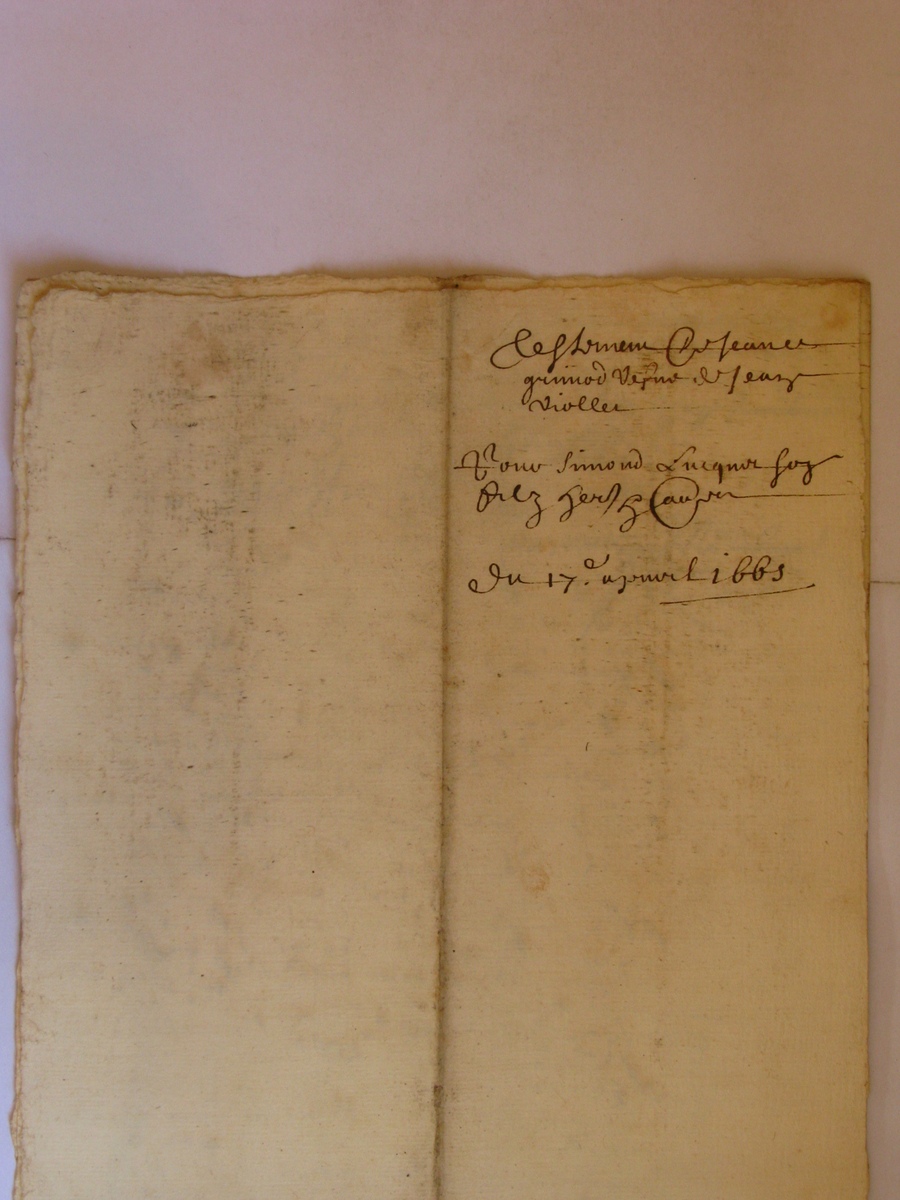 Testemem de Jeanne
grimod vefve de Jean
viollet
Pour Simond Lucquet son
filz herp
Du 17e apvril 1665